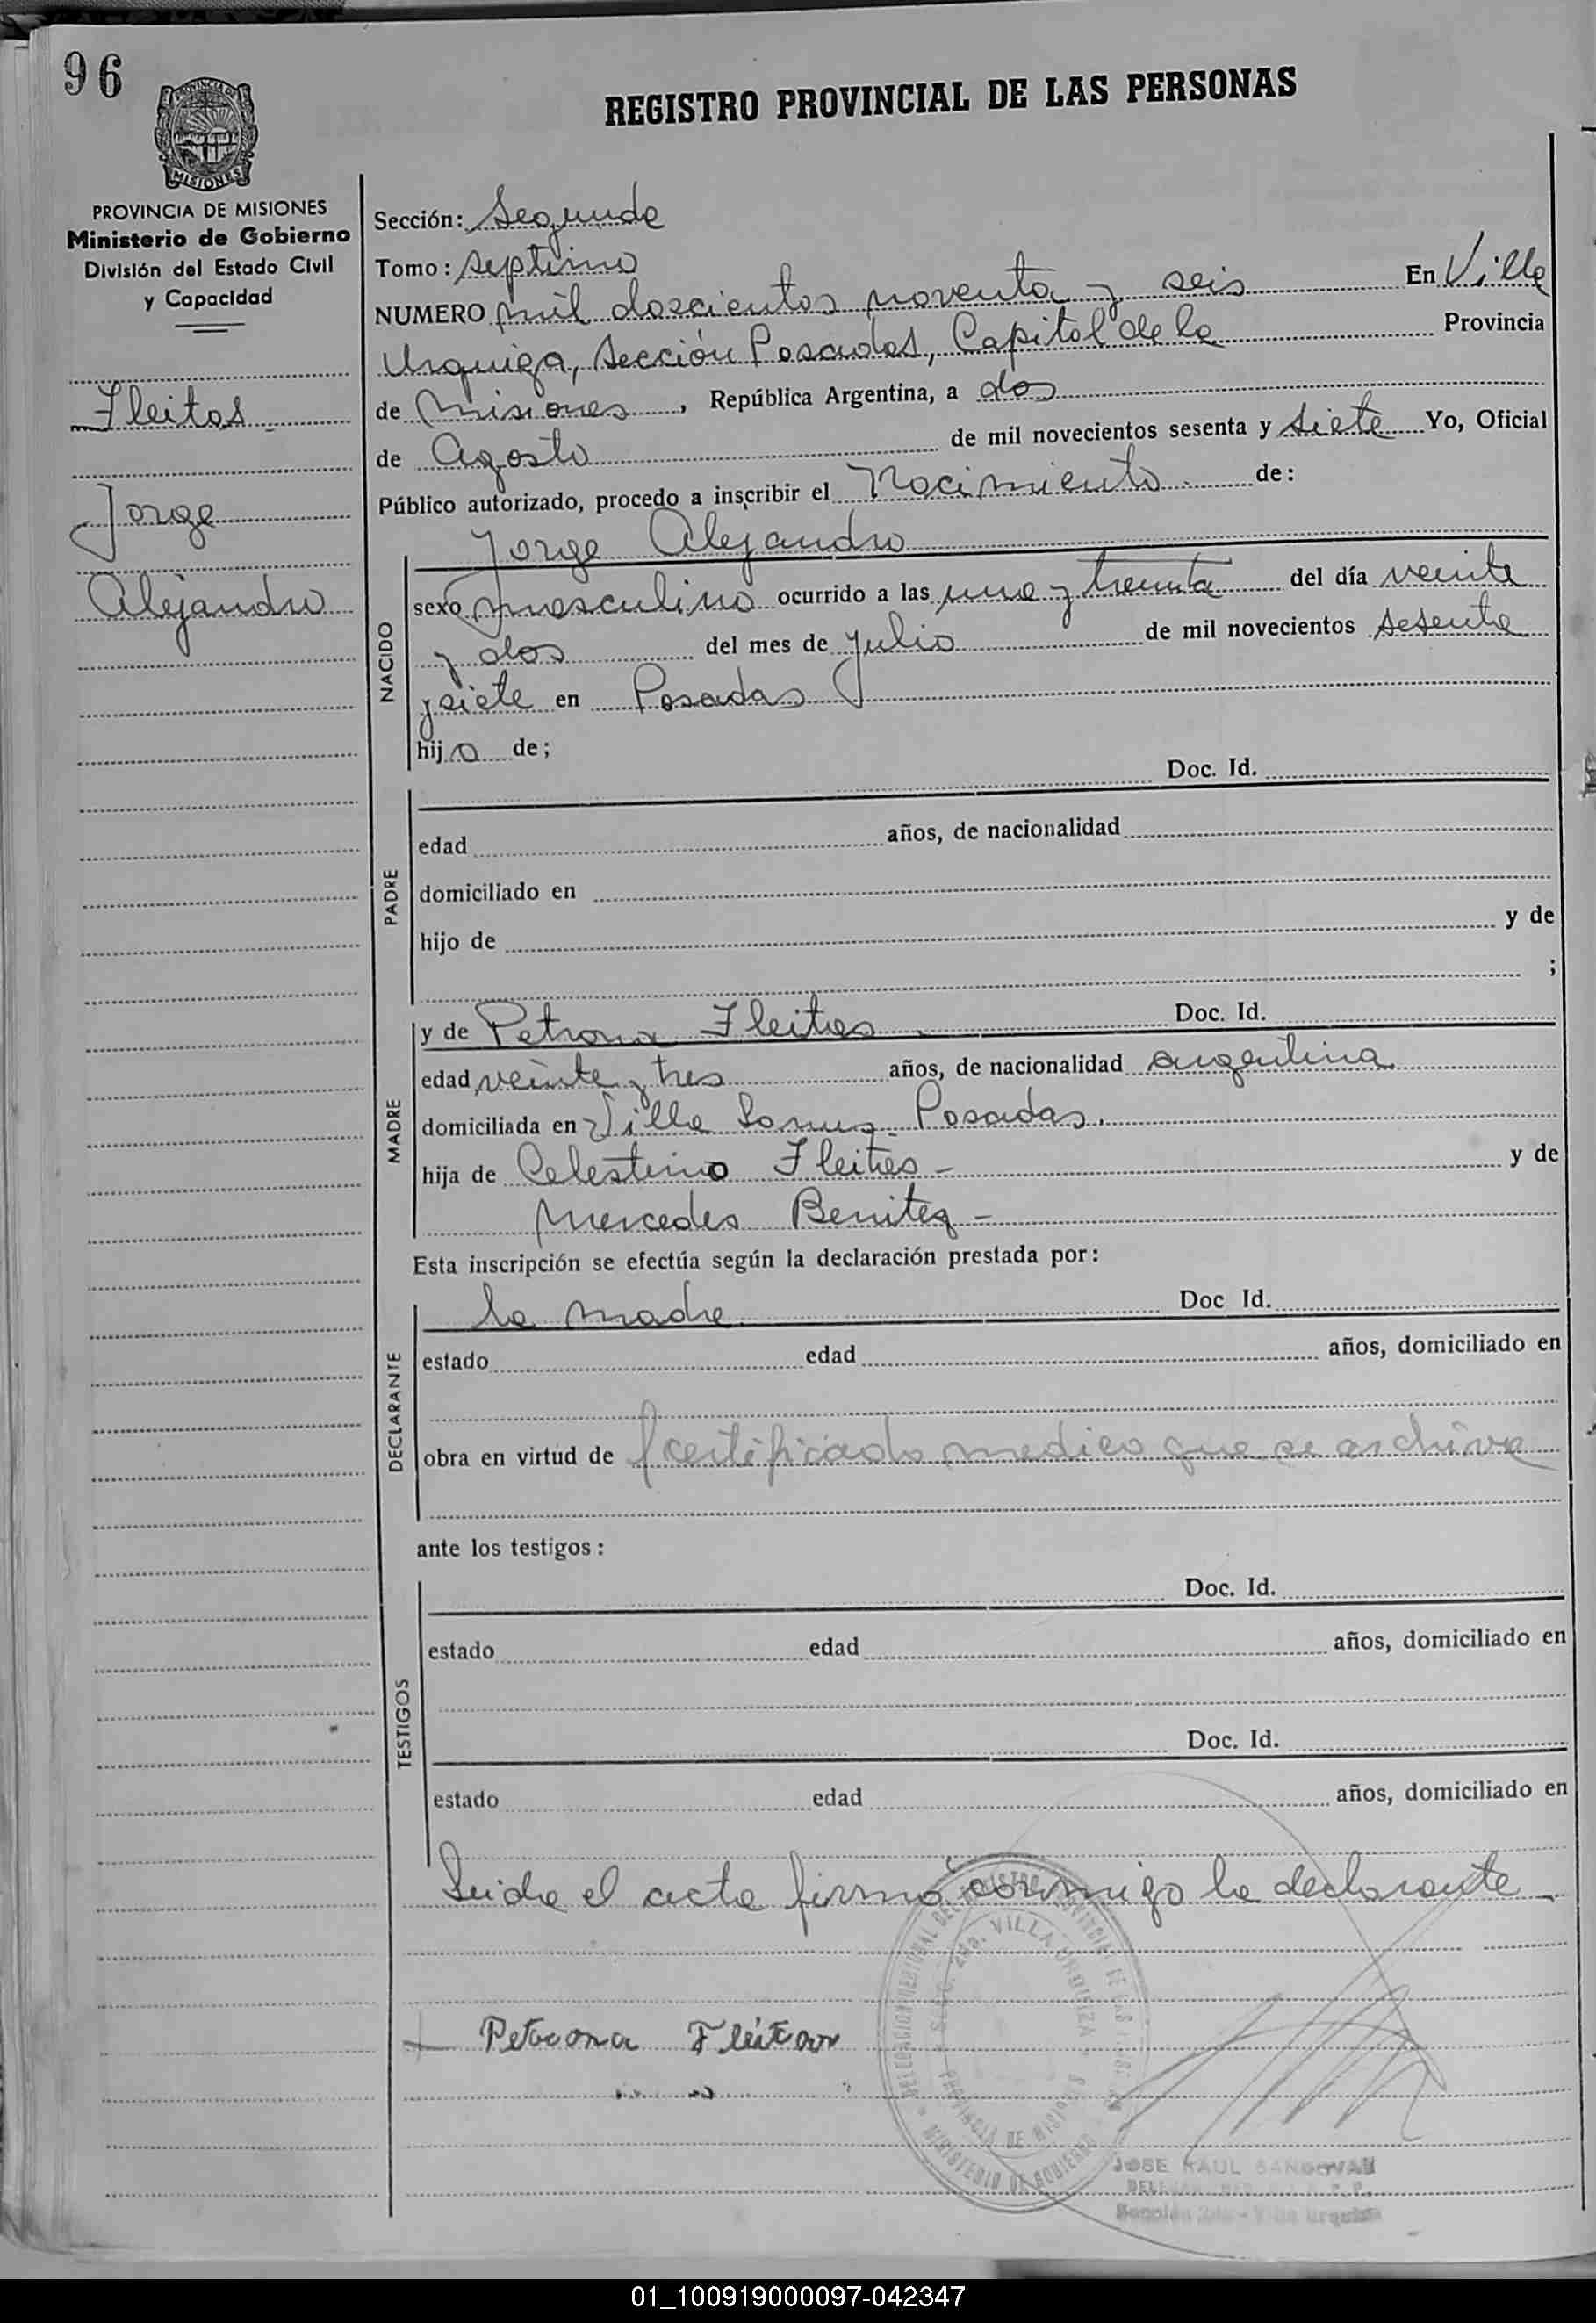 96
REGISTRO PROVINCIAL DE LAS PERSONAS
PROVINCIA DE
MISIONES
PROVINCIA DE MISIONES
Ministerio de Gobierno
División del Estado Civil
y Capacidad
Fleitas
Jorge
Alejandro
Sección: Segunda
Tomo: septimo
NUMERO mil doscientos noventa y seis En Villa
Urquiza, Sección Posadas, Capital de la Provincia
de Misiones, República Argentina, a dos
de Agosto de mil novecientos sesenta y siete Yo, Oficial
Público autorizado, procedo a inscribir el Nacimiento de:
NACIDO
Jorge Alejandro
sexo masculino ocurrido a las una y treinta del día veinte
y dos del mes de julio de mil novecientos sesenta
y siete en Posadas
hijo de;
PADRE
Doc. Id.
edad años, de nacionalidad
domiciliado en
hijo de y de
;
MADRE
y de Petrona Fleitas Doc. Id.
edad veinte y tres años, de nacionalidad argentina
domiciliada en Villa Posadas.
hija de Celestino Fleitas - y de
Mercedes Benitez -
Esta inscripción se efectúa según la declaración prestada por:
DECLARANTE
la madre. Doc Id.
estado edad años, domiciliado en
obra en virtud de certificado medico que se archiva
ante los testigos:
TESTIGOS
Doc. Id.
estado edad años, domiciliado en
Doc. Id.
estado edad años, domiciliado en
Leida el acta firma conmigo la declarante -
Petrona Fleitas
SECC. 2da. VILLA URQUIZA
PROVINCIA DE MISIONES
MINISTERIO DE GOBIERNO
JOSE RAUL SANDOVAL
01_100919000097-042347